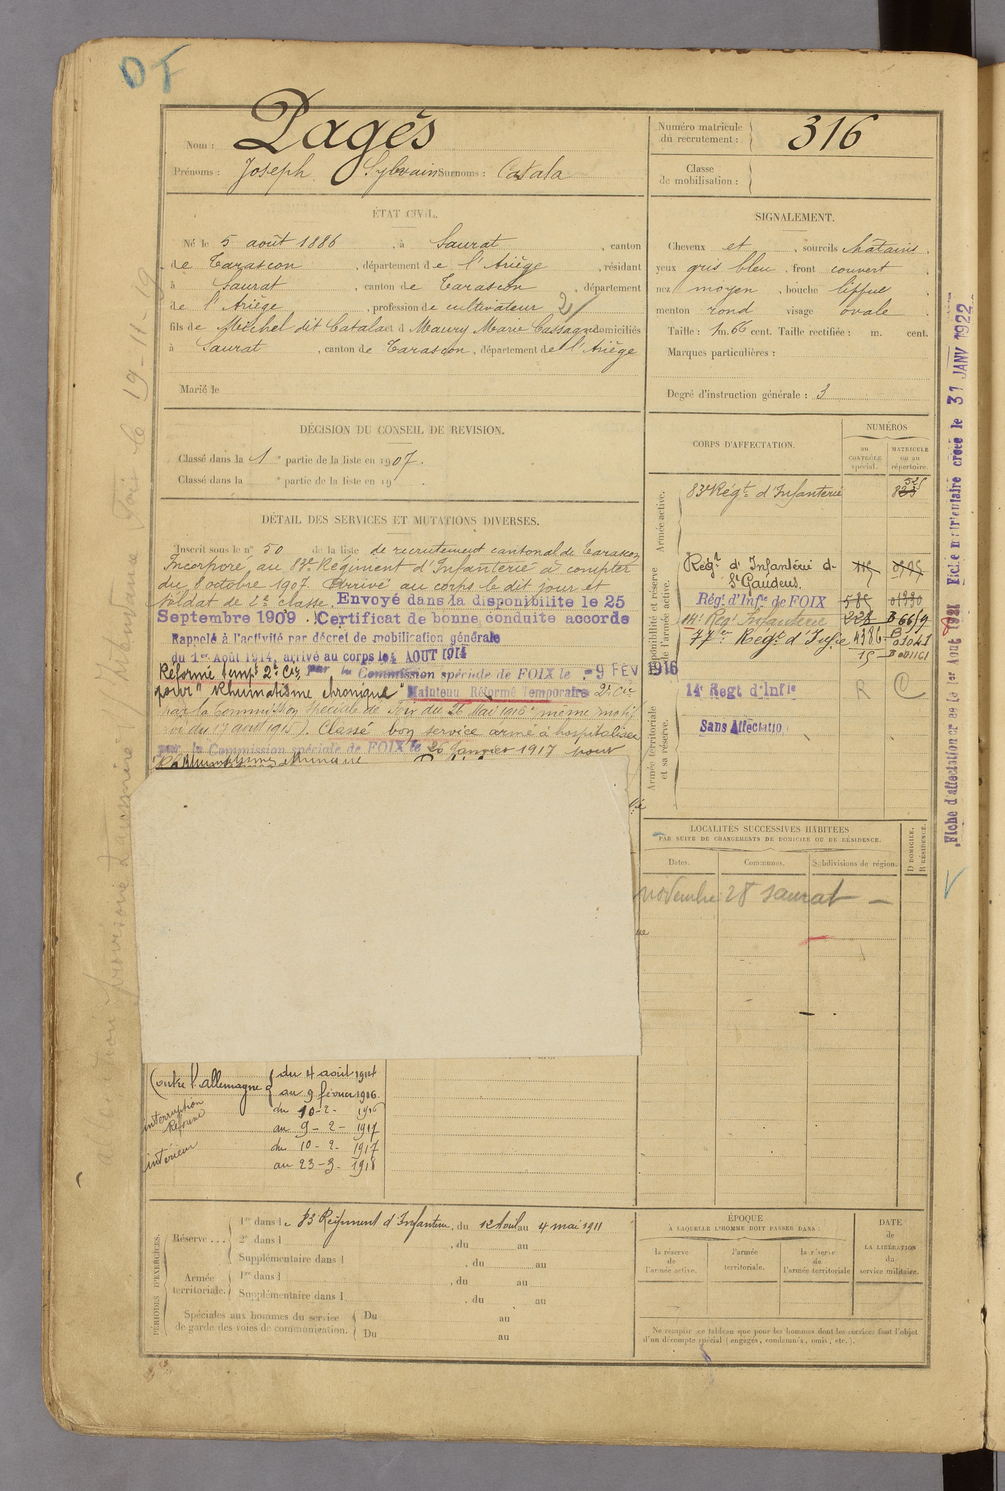 OT
Nom : Pagès
Prénoms : Joseph Sylvain Surnoms : Catala
Numéro matricule du recrutement : 316
Classe de mobilisation :
ÉTAT CIVIL.
Né le 5 août 1886, à Saurat, canton
de Tarascon, département de l'Ariège, résidant
à Saurat, canton de Tarascon, département
de l'Ariège, profession de cultivateur
fils de Michel dit Catala et d Maury Marie Cassagne domiciliés
à Saurat, canton de Tarascon, département de l'Ariège
Marié le
SIGNALEMENT.
Cheveux et, sourcils châtains.
yeux gris bleu, front couvert
nez moyen, bouche lippue
menton rond visage ovale
Taille : 1m. 66 cent. Taille rectifiée : m. cent.
Marques particulières :
Degré d'instruction générale : 3
DÉCISION DU CONSEIL DE REVISION.
Classé dans la 1e partie de la liste en 1907.
Classé dans la e partie de la liste en 19
DÉTAIL DES SERVICES ET MUTATIONS DIVERSES.
Inscrit sous le n° 50 de la liste de recrutement cantonal de Tarascon
Incorporé au 83e Régiment d'Infanterie à compter
du 8 octobre 1907 Arrivé au corps le dit jour et
soldat de 2e classe. Envoyé dans la disponibilité le 25
Septembre 1909. Certificat de bonne conduite accordé
Rappelé à l'activité par décret de mobilisation générale
du 1er Août 1914, arrivé au corps le 4 AOUT 1914
Réformé temp. 2e Cie par la Commission spéciale de FOIX le -9 FEV 1916
pour "Rhumatisme chronique" Maintenu Réformé Temporaire 2e Cie
par la Commission spéciale de Foix du 26 Mai 1916 (même motif
loi du 17 août 1915). Classé bon service armé à hospitaliser
par la Commission spéciale de FOIX le 26 Janvier 1917 pour
CORPS D'AFFECTATION.
NUMÉROS
AU CONTRÔLE spécial.
MATRICULE ou au répertoire.
Armée active.
83e Régt d'Infanterie
Disponibilité et réserve de l'armée active.
Régt d'Infanterie de St Gaudens.
Régt d'Infie de FOIX
14e Régt Infanterie
77e Régt d'Infie
Armée territoriale et sa réserve.
14e Regt d'Infie R
Sans Affectation
LOCALITÉS SUCCESSIVES HABITÉES
PAR SUITE DE CHANGEMENTS DE DOMICILE OU DE RÉSIDENCE.
Dates. Communes. Subdivisions de région. D DOMICILE. R RÉSIDENCE.
novembre 28 saurat
Contre l'allemagne { du 4 août 1914
au 9 février 1916.
interruption Réforme
du 10-2-1916
au 9-2-1917
intérieur
du 10-2-1917
au 23-3-1918
PÉRIODES D'EXERCICES.
Réserve ... 1re dans le 83 Régiment d'Infanterie, du 12 Avril au 4 mai 1911
2e dans l , du au
Supplémentaire dans l , du au
Armée territoriale. 1re dans l , du au
Supplémentaire dans l , du au
Spéciales aux hommes du service de garde des voies de communication. Du au
Du au
ÉPOQUE
A LAQUELLE L'HOMME DOIT PASSER DANS :
la réserve de l'armée active.
l'armée territoriale.
la réserve de l'armée territoriale
DATE de LA LIBÉRATION du service militaire.
Ne remplir ce tableau que pour les hommes dont les services font l'objet
d'un décompte spécial (engagés, condamnés, omis, etc.).
Fiche d'affectation créée le 1er Août 1921 Fiche matriculaire créée le 31 JANV 1922